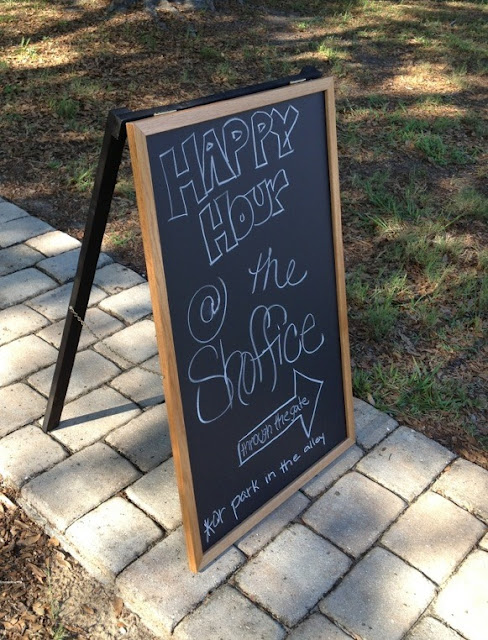 HAPPY
HOUR
@ the
Shoffice
through the gate
*or park in the alley